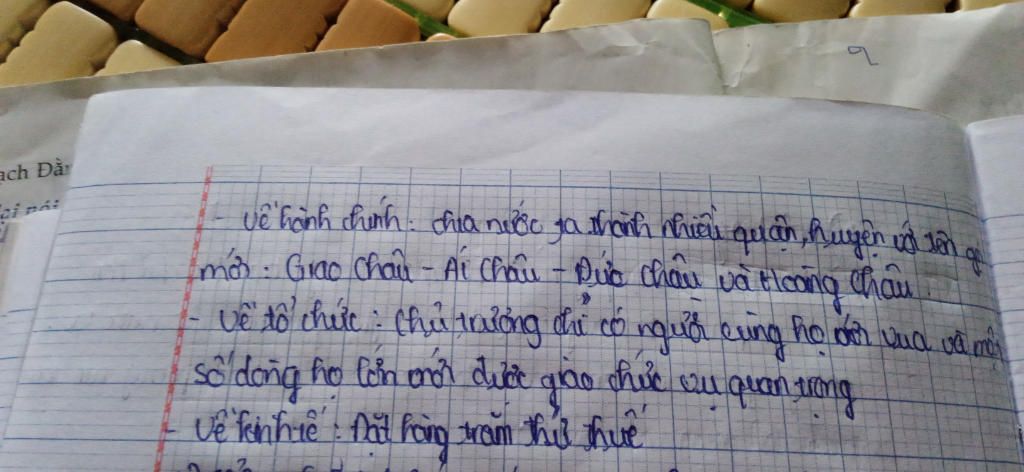 9
ạch Đằn
ời nói
- Về hành chính: chia nước ta thành nhiều quận, huyện với tên gọi
mới: Giao Châu - Ái Châu - Đức Châu và Hoàng Châu.
- Về tổ chức: Chủ trương chỉ có người cùng họ với vua và một
số dòng họ lớn mới được giao chức vụ quan trọng
- Về kinh tế: Đặt hàng trăm thứ thuế